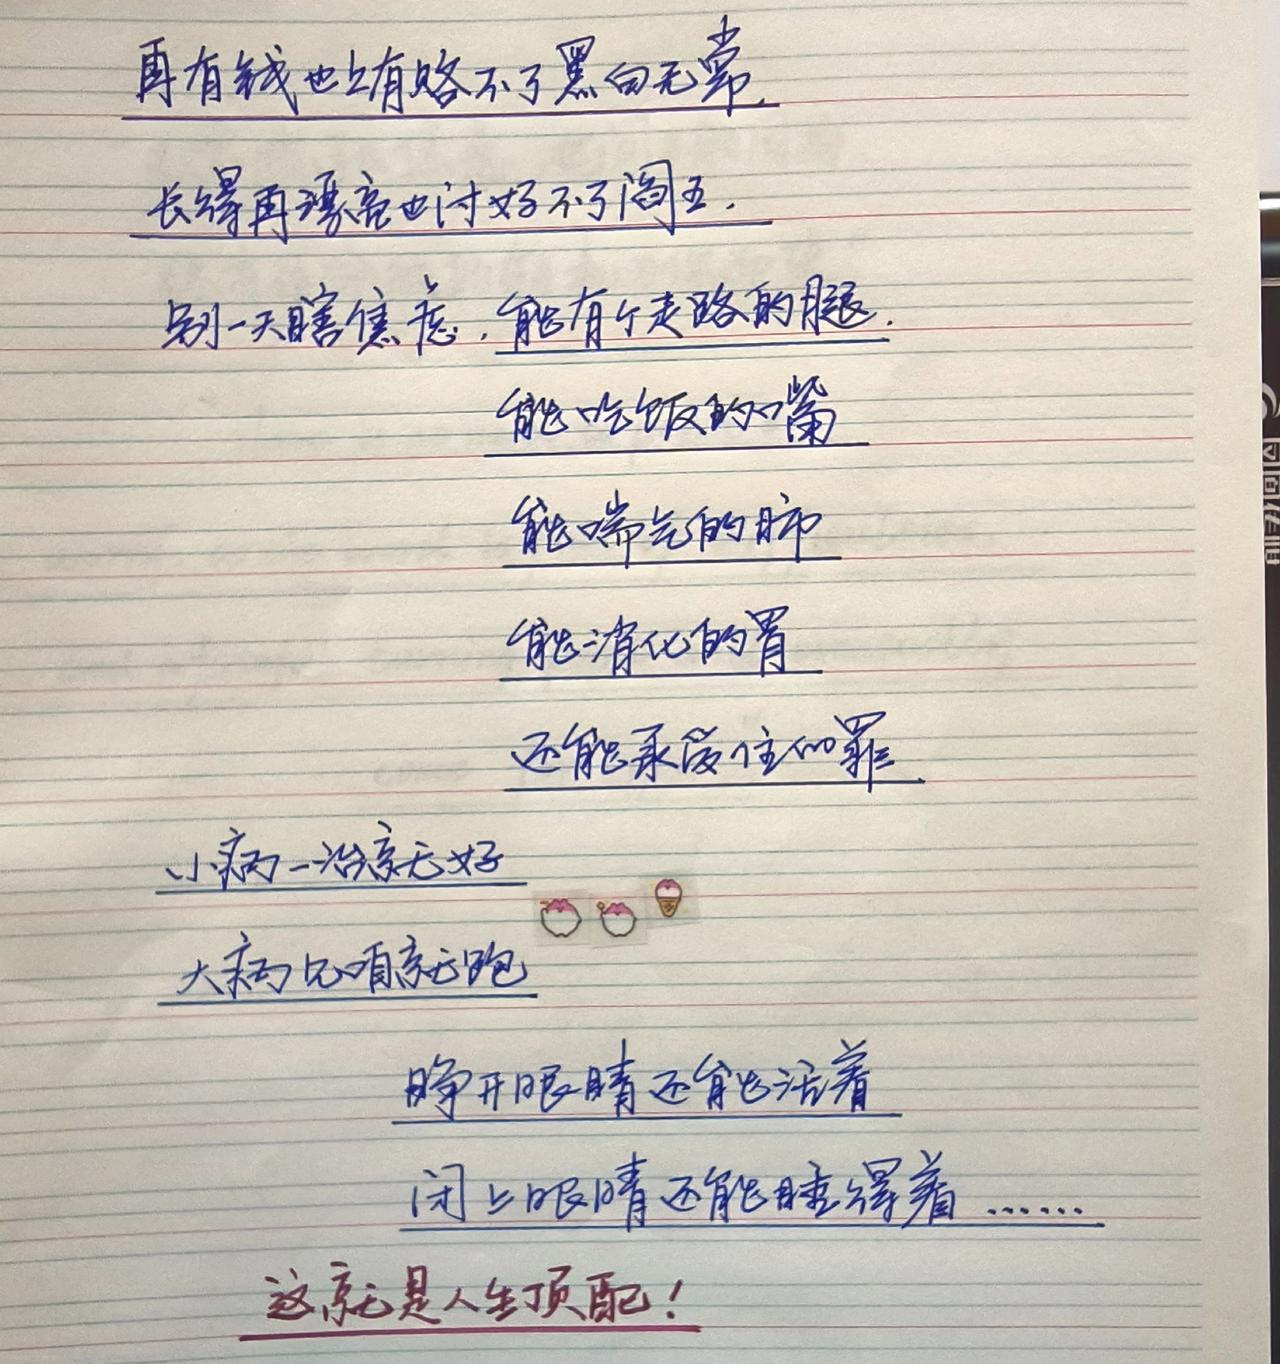 再有钱也贿赂不了黑白无常.
长得再漂亮也讨好不了阎王.
别一天瞎焦虑.能有个走路的腿.
能吃饭的嘴
能喘气的肺
能消化的胃
还能承受住的罪
小病一治就好
大病兄咱就跑
睁开眼睛还能活着
闭上眼睛还能睡得着……
这就是人生顶配!